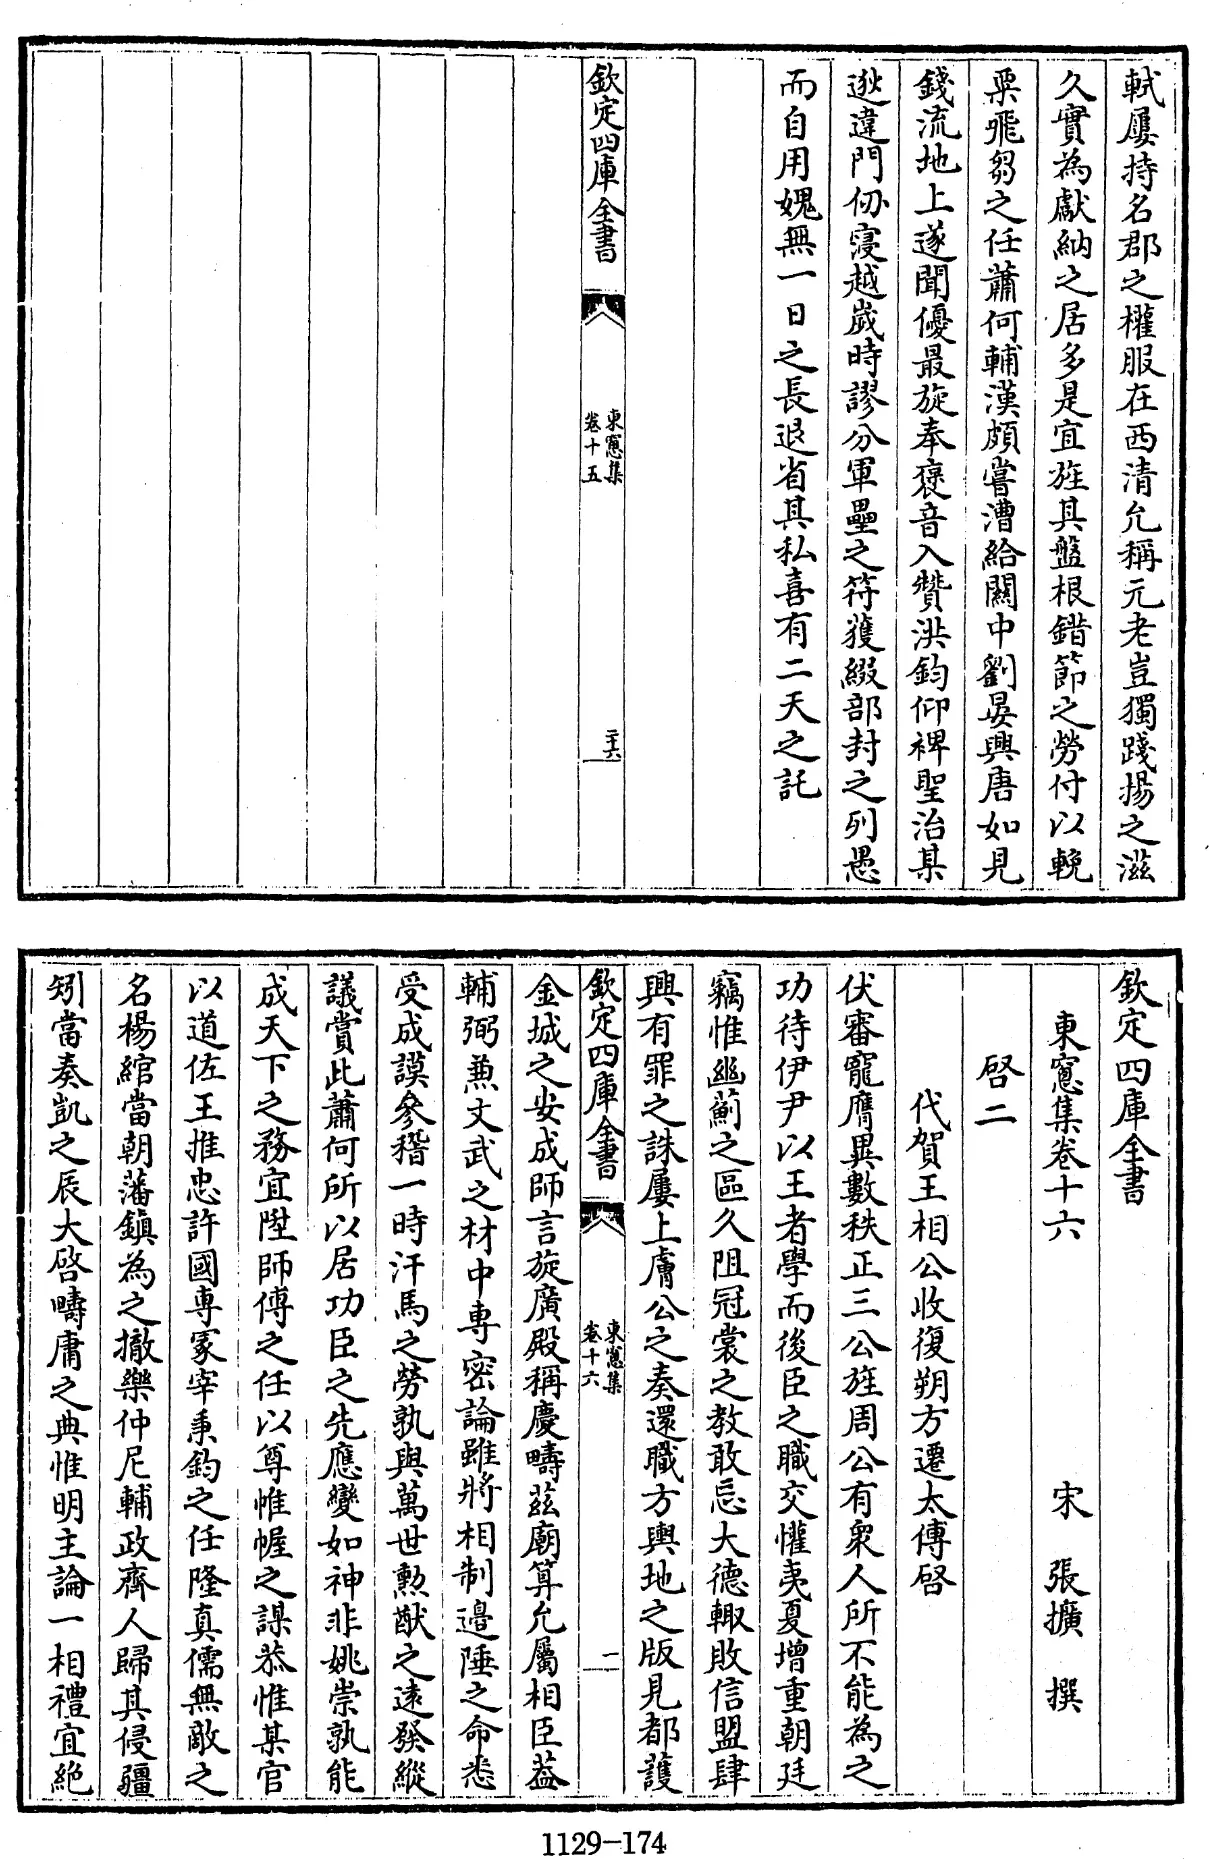 軾屢持名郡之權服在西清允稱元老豈獨踐揚之滋
久實為獻納之居多是宜旌其盤根錯節之勞付以輓
粟飛芻之任蕭何輔漢頗嘗漕給關中劉晏興唐如見
錢流地上遂聞優最旋奉褒音入贊洪鈞仰裨聖治某
逖違門仞寖越歲時謬分軍壘之符獲綴部封之列愚
而自用媿無一日之長退省其私喜有二天之託
欽定四庫全書
東窻集
卷十五
二十六
欽定四庫全書
東窻集卷十六
宋 張擴 撰
啓二
代賀王相公收復朔方遷太傅啓
伏審寵膺異數秩正三公旌周公有衆人所不能為之
功待伊尹以王者學而後臣之職交懽夷夏增重朝廷
竊惟幽薊之區久阻冠裳之教敢忘大德輙敗信盟肆
興有罪之誅屢上膚公之奏還職方輿地之版見都護
欽定四庫全書
東窻集
卷十六
一
金城之安成師言旋廣殿稱慶疇茲廟算允屬相臣益
輔弼兼文武之材中專密論雖將相制邊陲之命悉
受成謨參稽一時汗馬之勞孰與萬世勲猷之逺發縱
議賞此蕭何所以居功臣之先應變如神非姚崇孰能
成天下之務宜陞師傅之任以尊帷幄之謀恭惟某官
以道佐王推忠許國專冢宰秉鈞之任隆真儒無敵之
名楊綰當朝藩鎮為之撤樂仲尼輔政齊人歸其侵疆
矧當奏凱之辰大啓疇庸之典惟明主論一相禮宜絶
1129-174